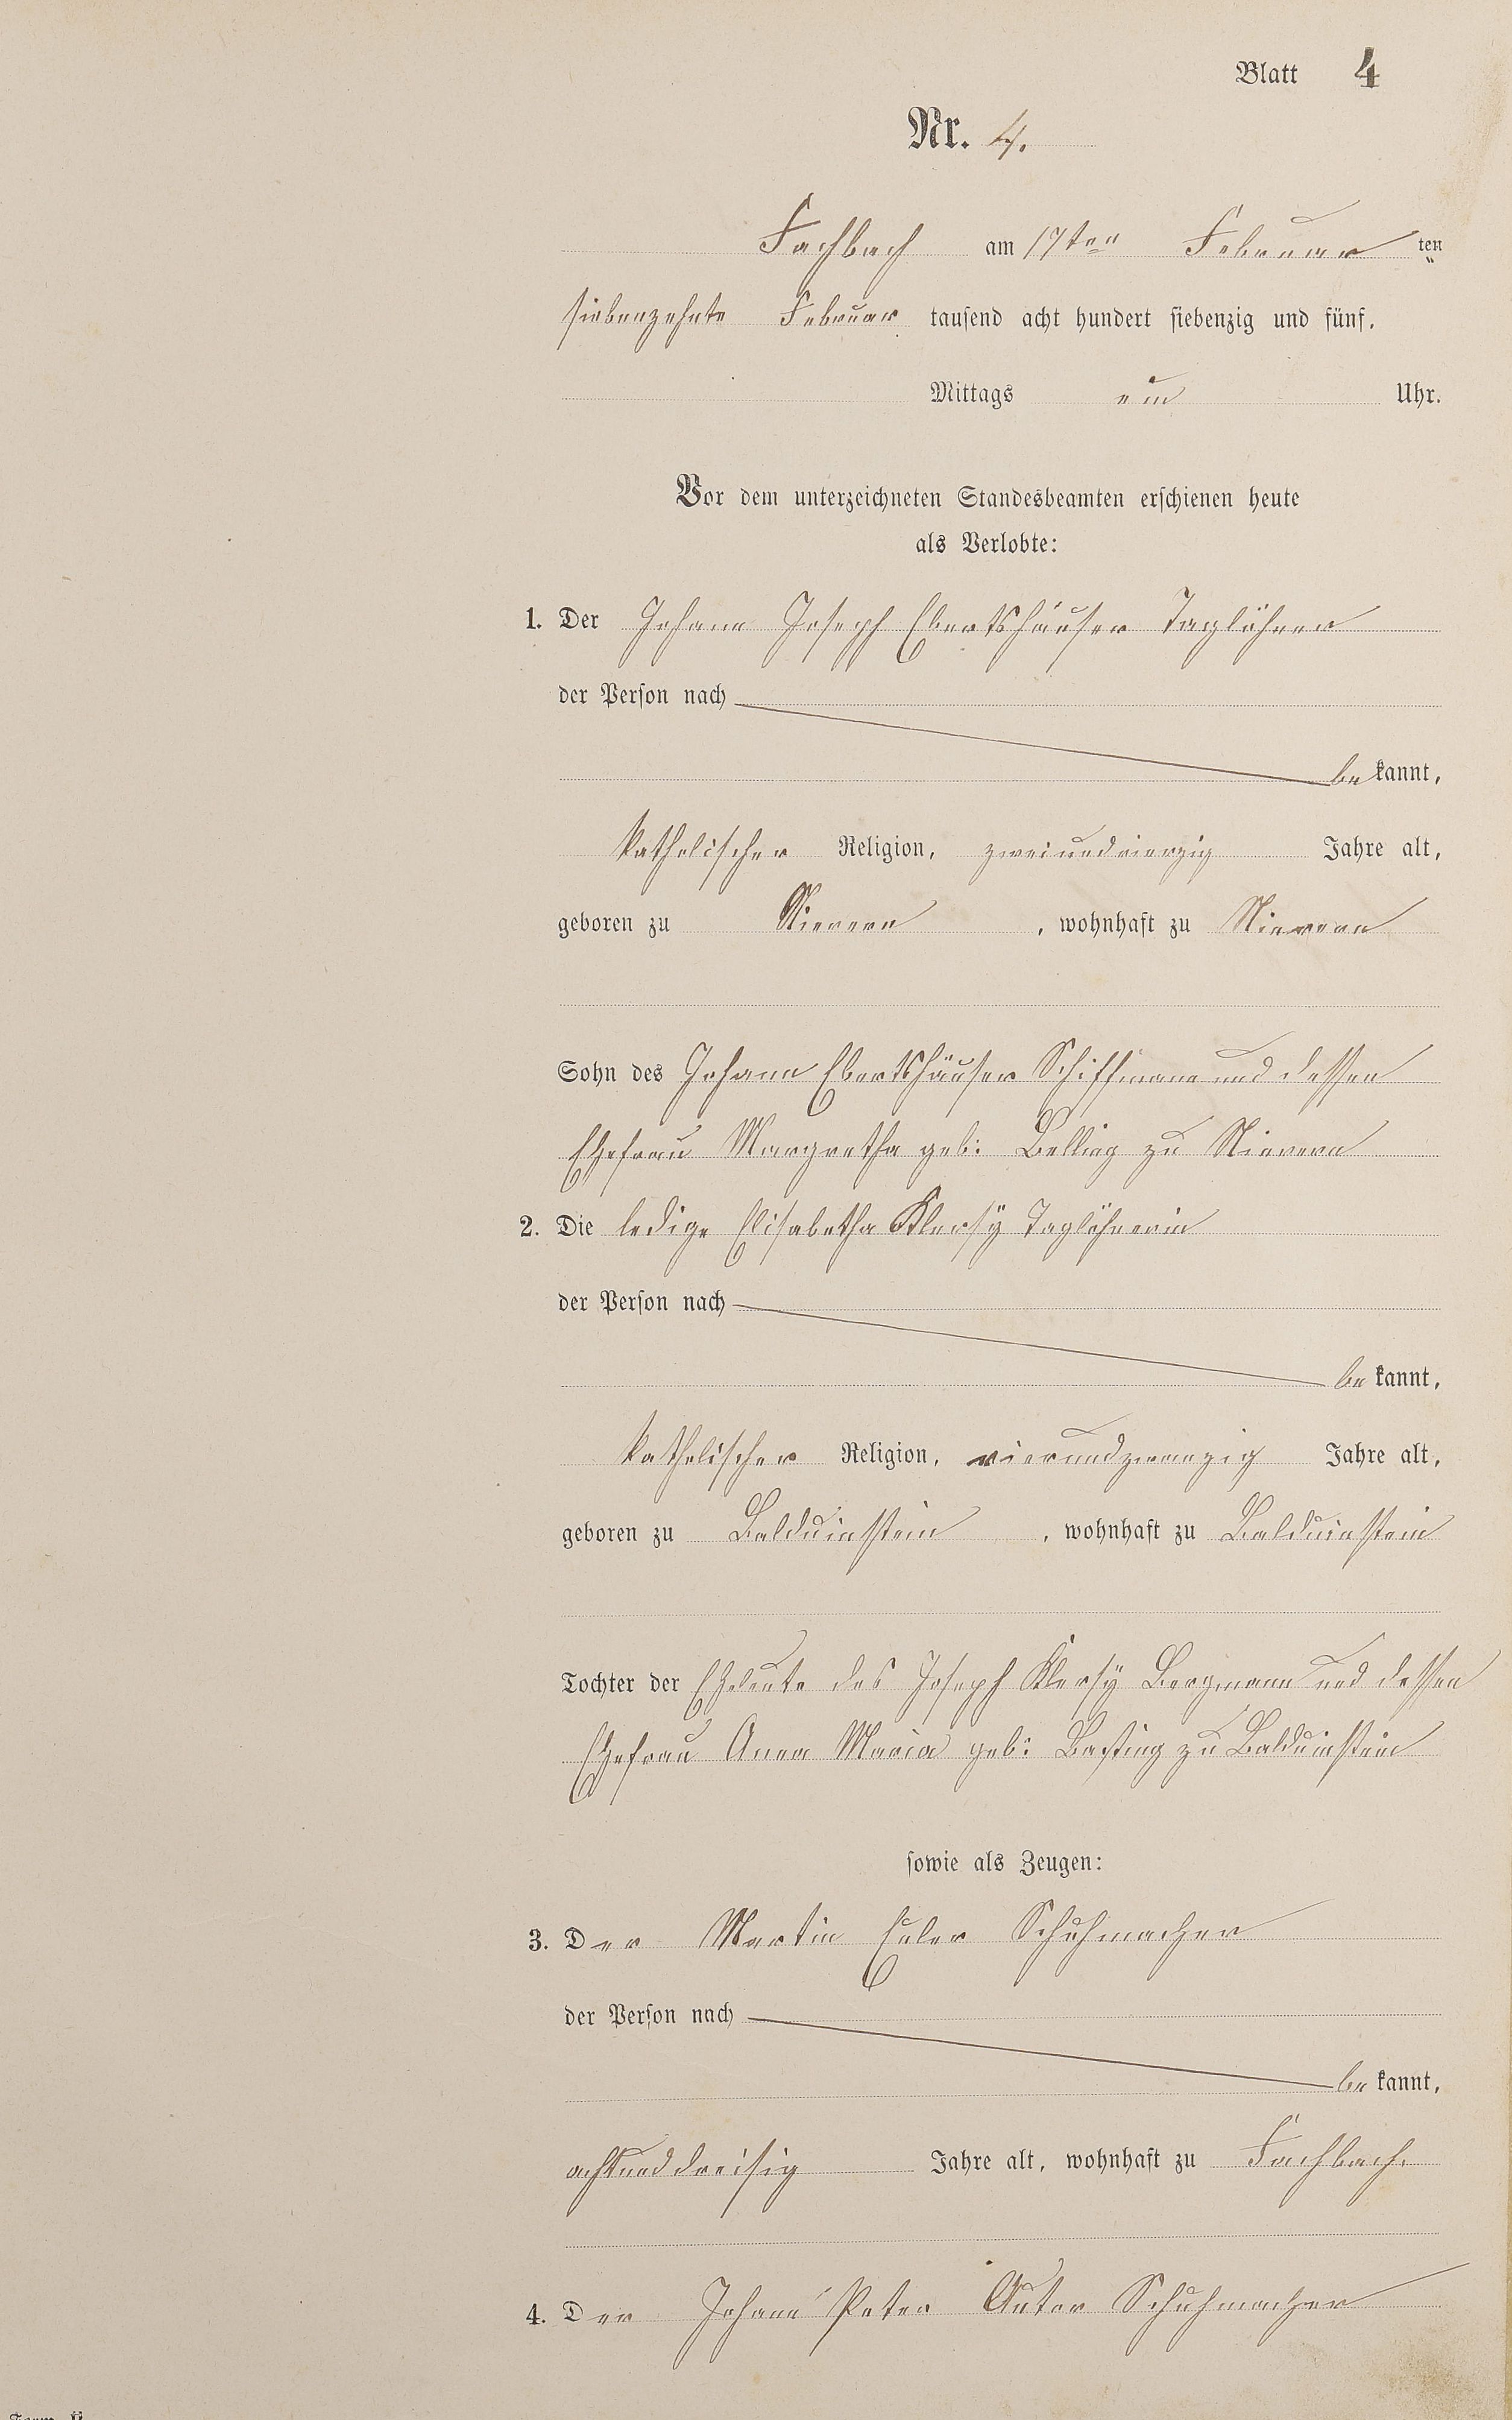 Blatt 4
Nr. 4.
Fachbach am 17ten Februar ten
siebenzehnte Februar tausend acht hundert siebenzig und fünf.
Mittags ein Uhr.
Vor dem unterzeichneten Standesbeamten erschienen heute
als Verlobte:
1. Der Johann Joseph Ebertshäuser Taglöhner
der Person nach
be kannt,
katholischer Religion, zweiundvierzig Jahre alt,
geboren zu Nievern, wohnhaft zu Nievern
Sohn des Johann Ebertshäuser Schiffmann und dessen
Ehefrau Margretha geb: Belling zu Nievern
2. Die ledige Elisabetha Klersÿ Taglöhnerin
der Person nach
be kannt,
katholischer Religion, vierundzwanzig Jahre alt,
geboren zu Balduinstein, wohnhaft zu Balduinstein
Tochter der Eheleute des Joseph Klersÿ Bergmann und dessen
Ehefrau Anna Maria geb: Basting zu Balduinstein
sowie als Zeugen:
3. Der Martin Euler Schuhmacher
der Person nach
be kannt,
achtunddreisig Jahre alt, wohnhaft zu Fachbach.
4. Der Johann Peter Autor Schuhmacher